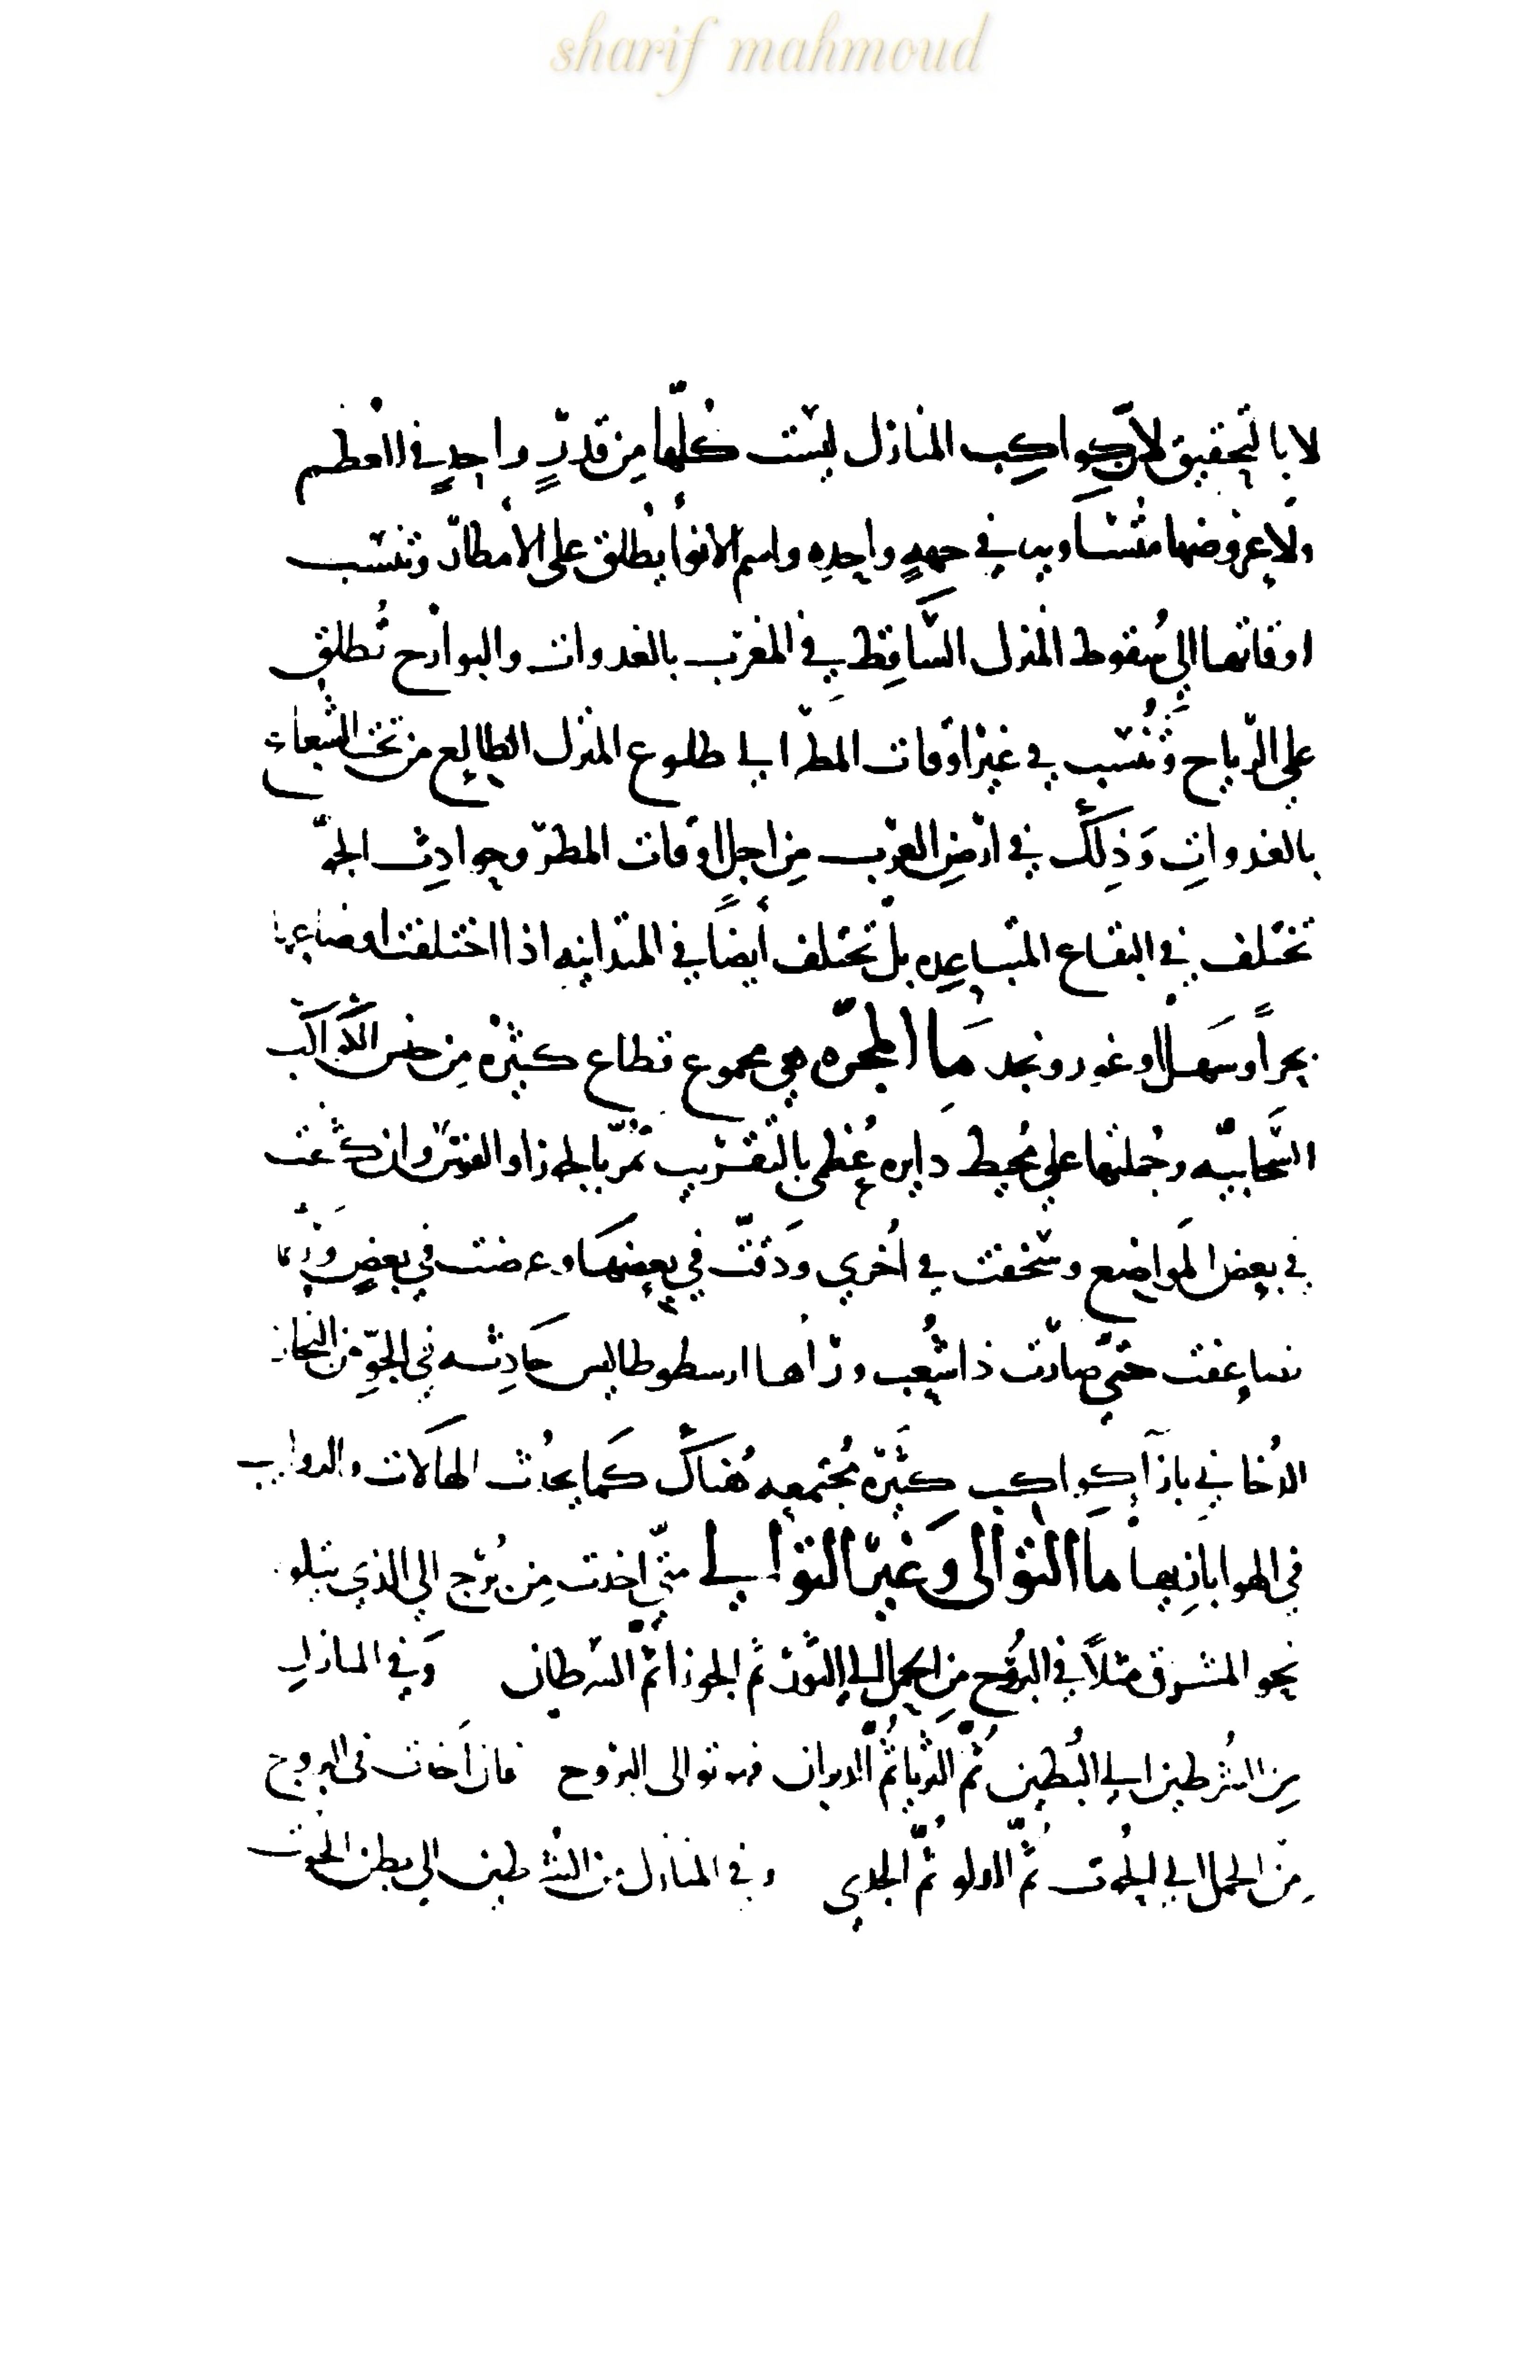 sharif mahmoud
لا بالتحقيق لان كواكب المنازل ليست كُلّها مِن قدرٍ واحدٍ في العظم
ولا عروضها متساويه في جههٍ واحدِه واسم الانوأ يُطلق على الأمطار وتنسب
اوقاتها الي سُقوط المنزل السّاقِط في المغرب بالغدوات والبوارح تُطلق
علي الرّياح وتُنسب في غير اوقات المطر الي طلوع المنزل الطالِع من تحت الشعاع
بالغدواتِ وَذلِكَ في ارضِ العرب مِن اجل اوقات المطر وحوادِث الجوّ
تختلف في البقاع المتباعِده بل تختلف أيضًا في المتدانيه اذا اختلفت اوضاعها
بحراً وسَهلاً وغور ونجد مَا المجرّه هي مجموع قطاع كثيره مِن جنس الكواكب
السَّحابيّه وجُملتها علي مُحيط دايره عُظمى بالتقريب تمرّ بالجوزا والقوس وان كثفت
في بعض المَواضِع وسخفت في اُخري وَدقّت في بعضهَا وعرضت في بعضٍ وربّما
تضاعفت حتّي صارت ذا شُعب ورأها ارسطوطاليس حَادِثه في الجوِّ من البخار
الدُخاني بازآ كواكب كثيَره مُجتمعه هُناكَ كمَا يحدُث الهَالات والذوايب
في الهوا بازيها مَا التوالى وَغير التوالي متّي اخذت مِن بُرج الي الذي يتلوه
نحو المشرق مثلاً في البرُوج مِن الحمل الي الثور ثم الجوزا ثم السّرطان وَفي المنازل
مِن الشَرطين الي البُطين ثُمّ الثريا ثُمّ الدبران فهو توالى البروج فان اَخذت في البروج
مِن الحمل الي الحُوت ثُمّ الدلو ثُمّ الجدي وفي المنازل من الشرطين الي بطن الحُوت